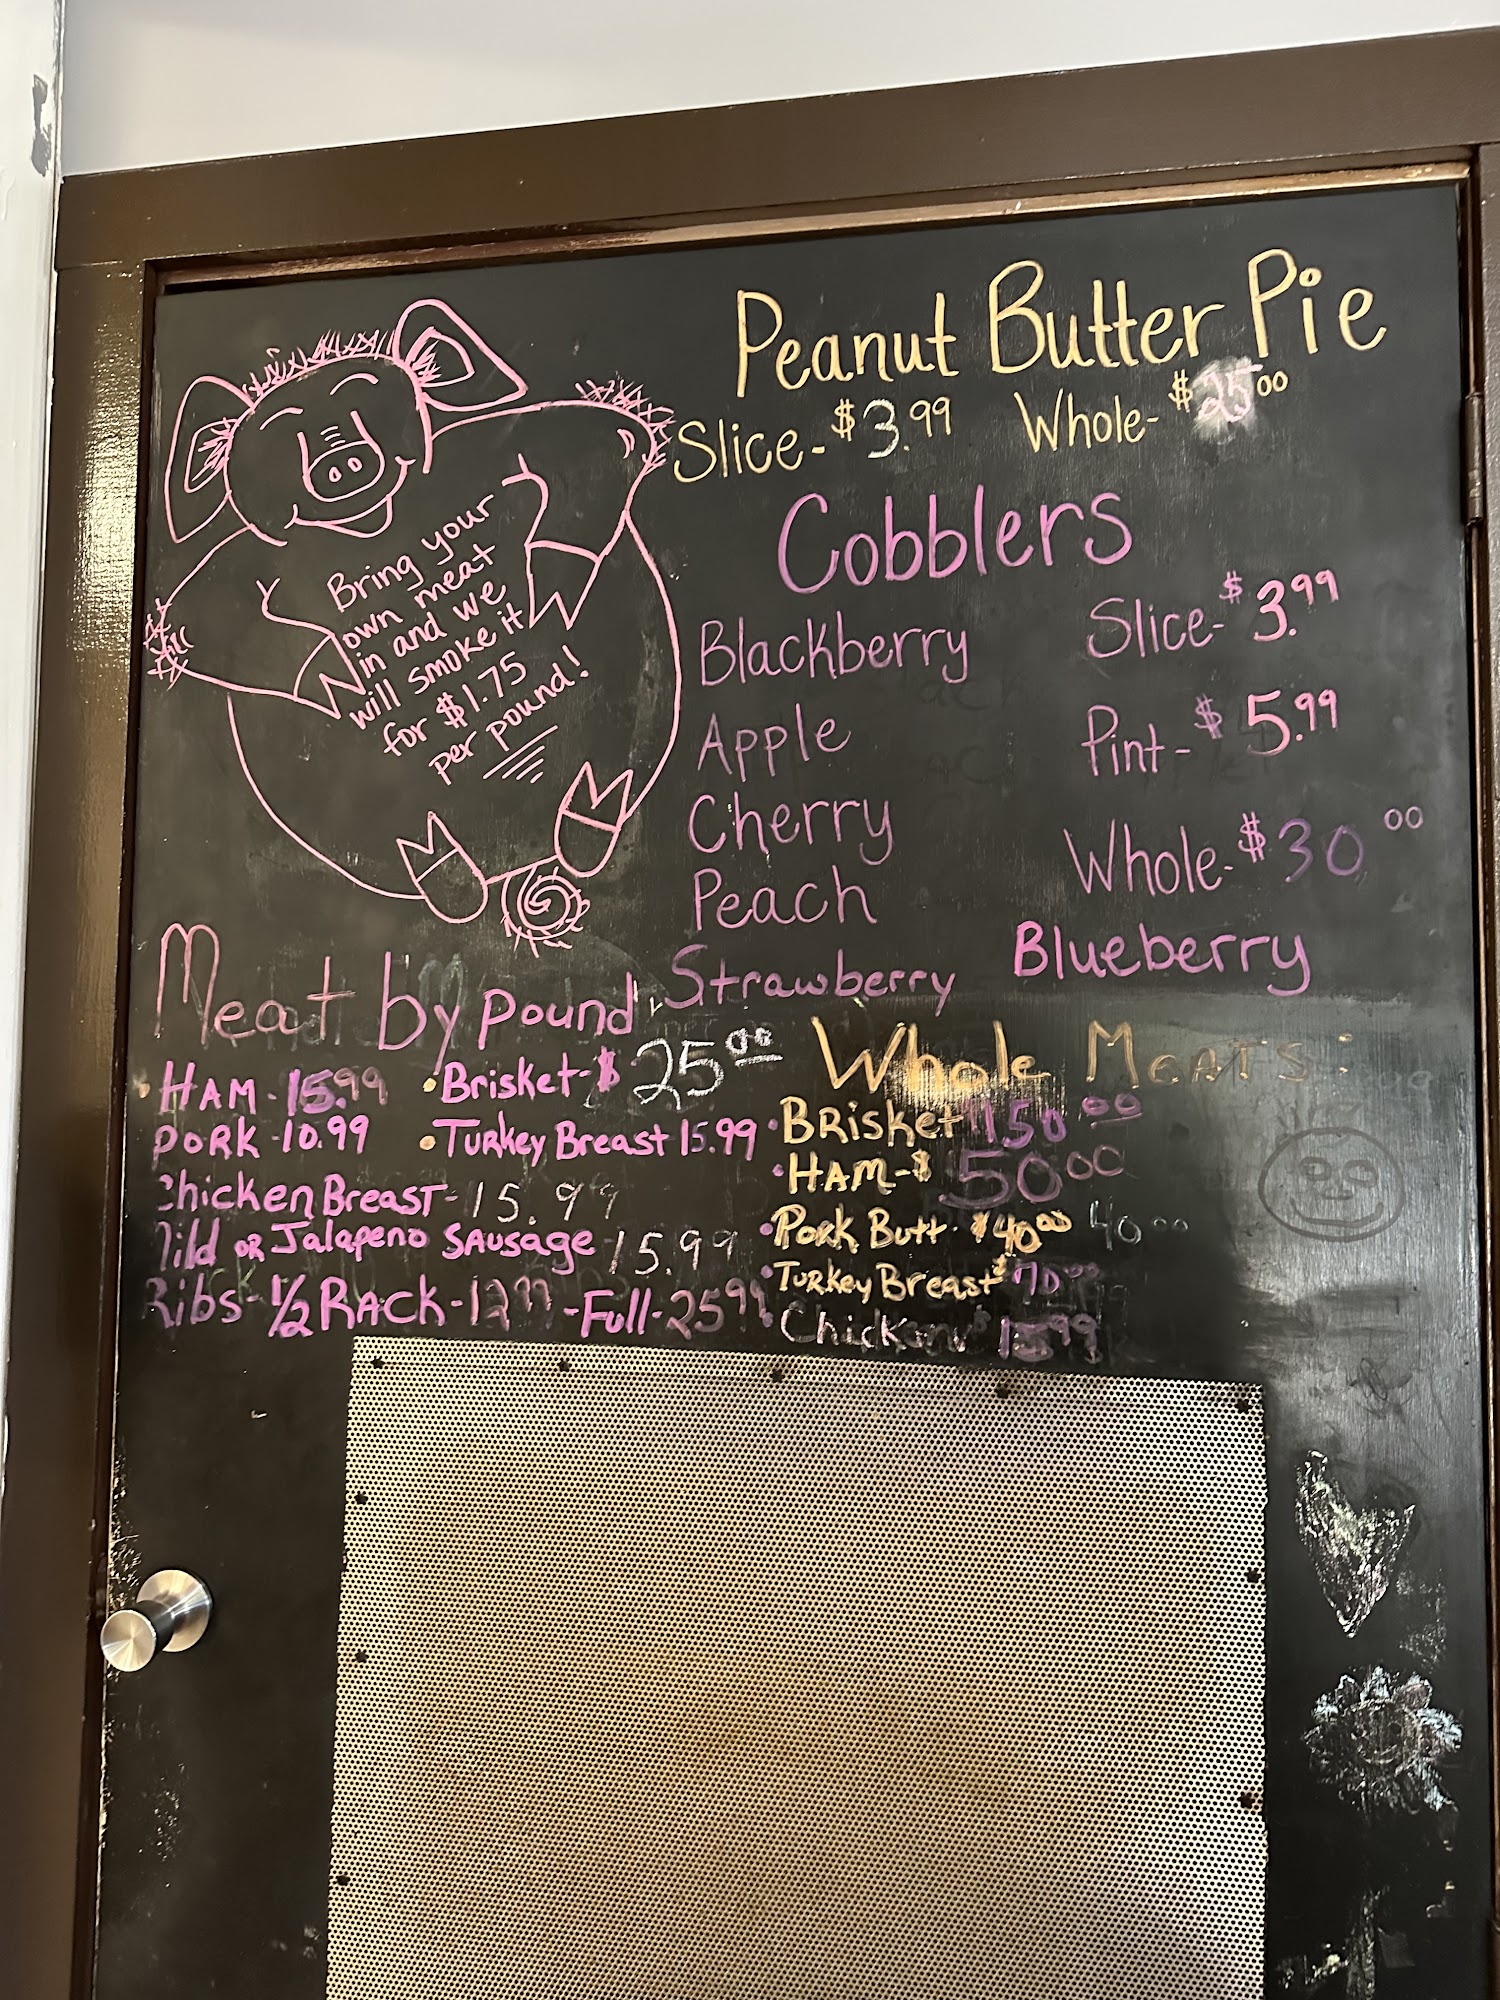 Peanut Butter Pie
Slice- $3.99 Whole- $25.00
Bring your
own meat
in and we
will smoke it
for $1.75
per pound!
Cobblers
Blackberry Slice- $3.99
Apple Pint- $5.99
Cherry Whole- $30.00
Peach
Strawberry Blueberry
Meat by Pound
• HAM - 15.99 • Brisket- $25.00
PORK - 10.99 • Turkey Breast 15.99
Chicken Breast- 15.99
Mild OR Jalapeno Sausage 15.99
Ribs- 1/2 RACK - 12.99 - Full- 25.99
Whole Meats:
• BRisket $150.00
• HAM- $50.00
• Pork Butt- $40.00 40.00
• Turkey Breast $70.00
• Chicken